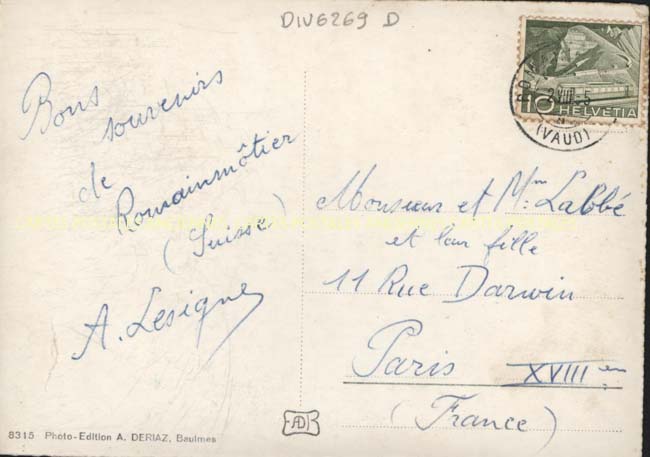 DIV6269 D
Bons
souvenirs
de
Romainmôtier
(Suisse)
A. Lesigne
10 HELVETIA
(VAUD)
Monsieur et Mme Labbé
et leur fille
11 Rue Darwin
Paris XVIIIem
(France)
AD
8315 Photo-Edition A. DERIAZ, Baulmes